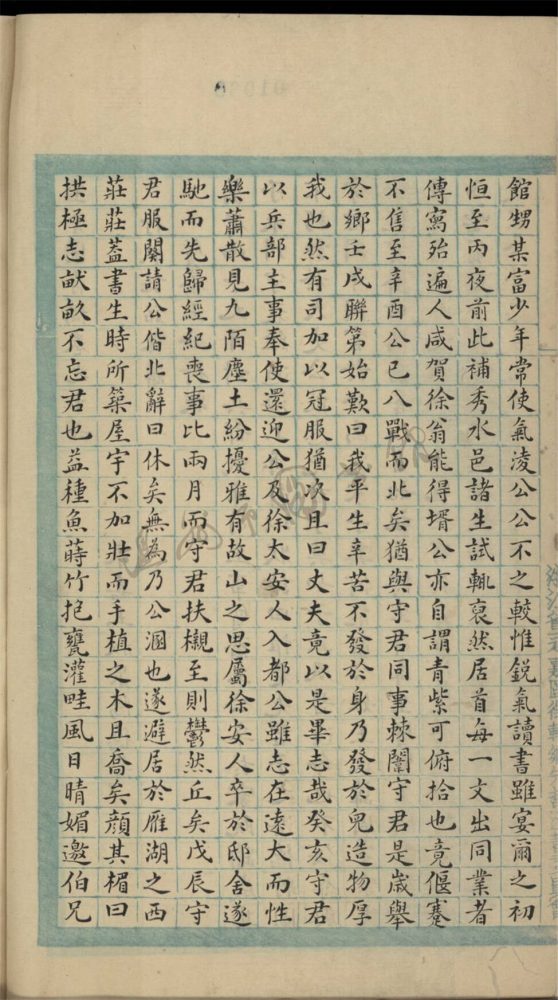 館甥某富少年常使氣淩公公不之較惟鋭氣讀書雖宴爾之初
恒至丙夜前此補秀水邑諸生試輒裒然居首每一文出同業者
傳寫殆遍人咸賀徐翁能得壻公亦自謂青紫可俯拾也竟偃蹇
不售至辛酉公已八戰而北矣猶與守君同事棘闈守君是歲舉
於鄉壬戌聯第始歎曰我平生辛苦不發於身乃發於兒造物厚
我也然有司加以冠服猶次且曰丈夫竟以是畢志哉癸亥守君
以兵部主事奉使還迎公及徐太安人入都公雖志在遠大而性
樂蕭散見九陌塵土紛擾雅有故山之思屬徐安人卒於邸舍遂
馳而先歸經紀喪事比兩月而守君扶櫬至則鬱然丘矣戊辰守
君服闋請公偕北辭曰休矣無為乃公溷也遂避居於雁湖之西
莊莊蓋書生時所築屋宇不加壯而手植之木且喬矣顏其楣曰
拱極志畎畝不忘君也益種魚蒔竹抱甕灌畦風日晴媚邀伯兄